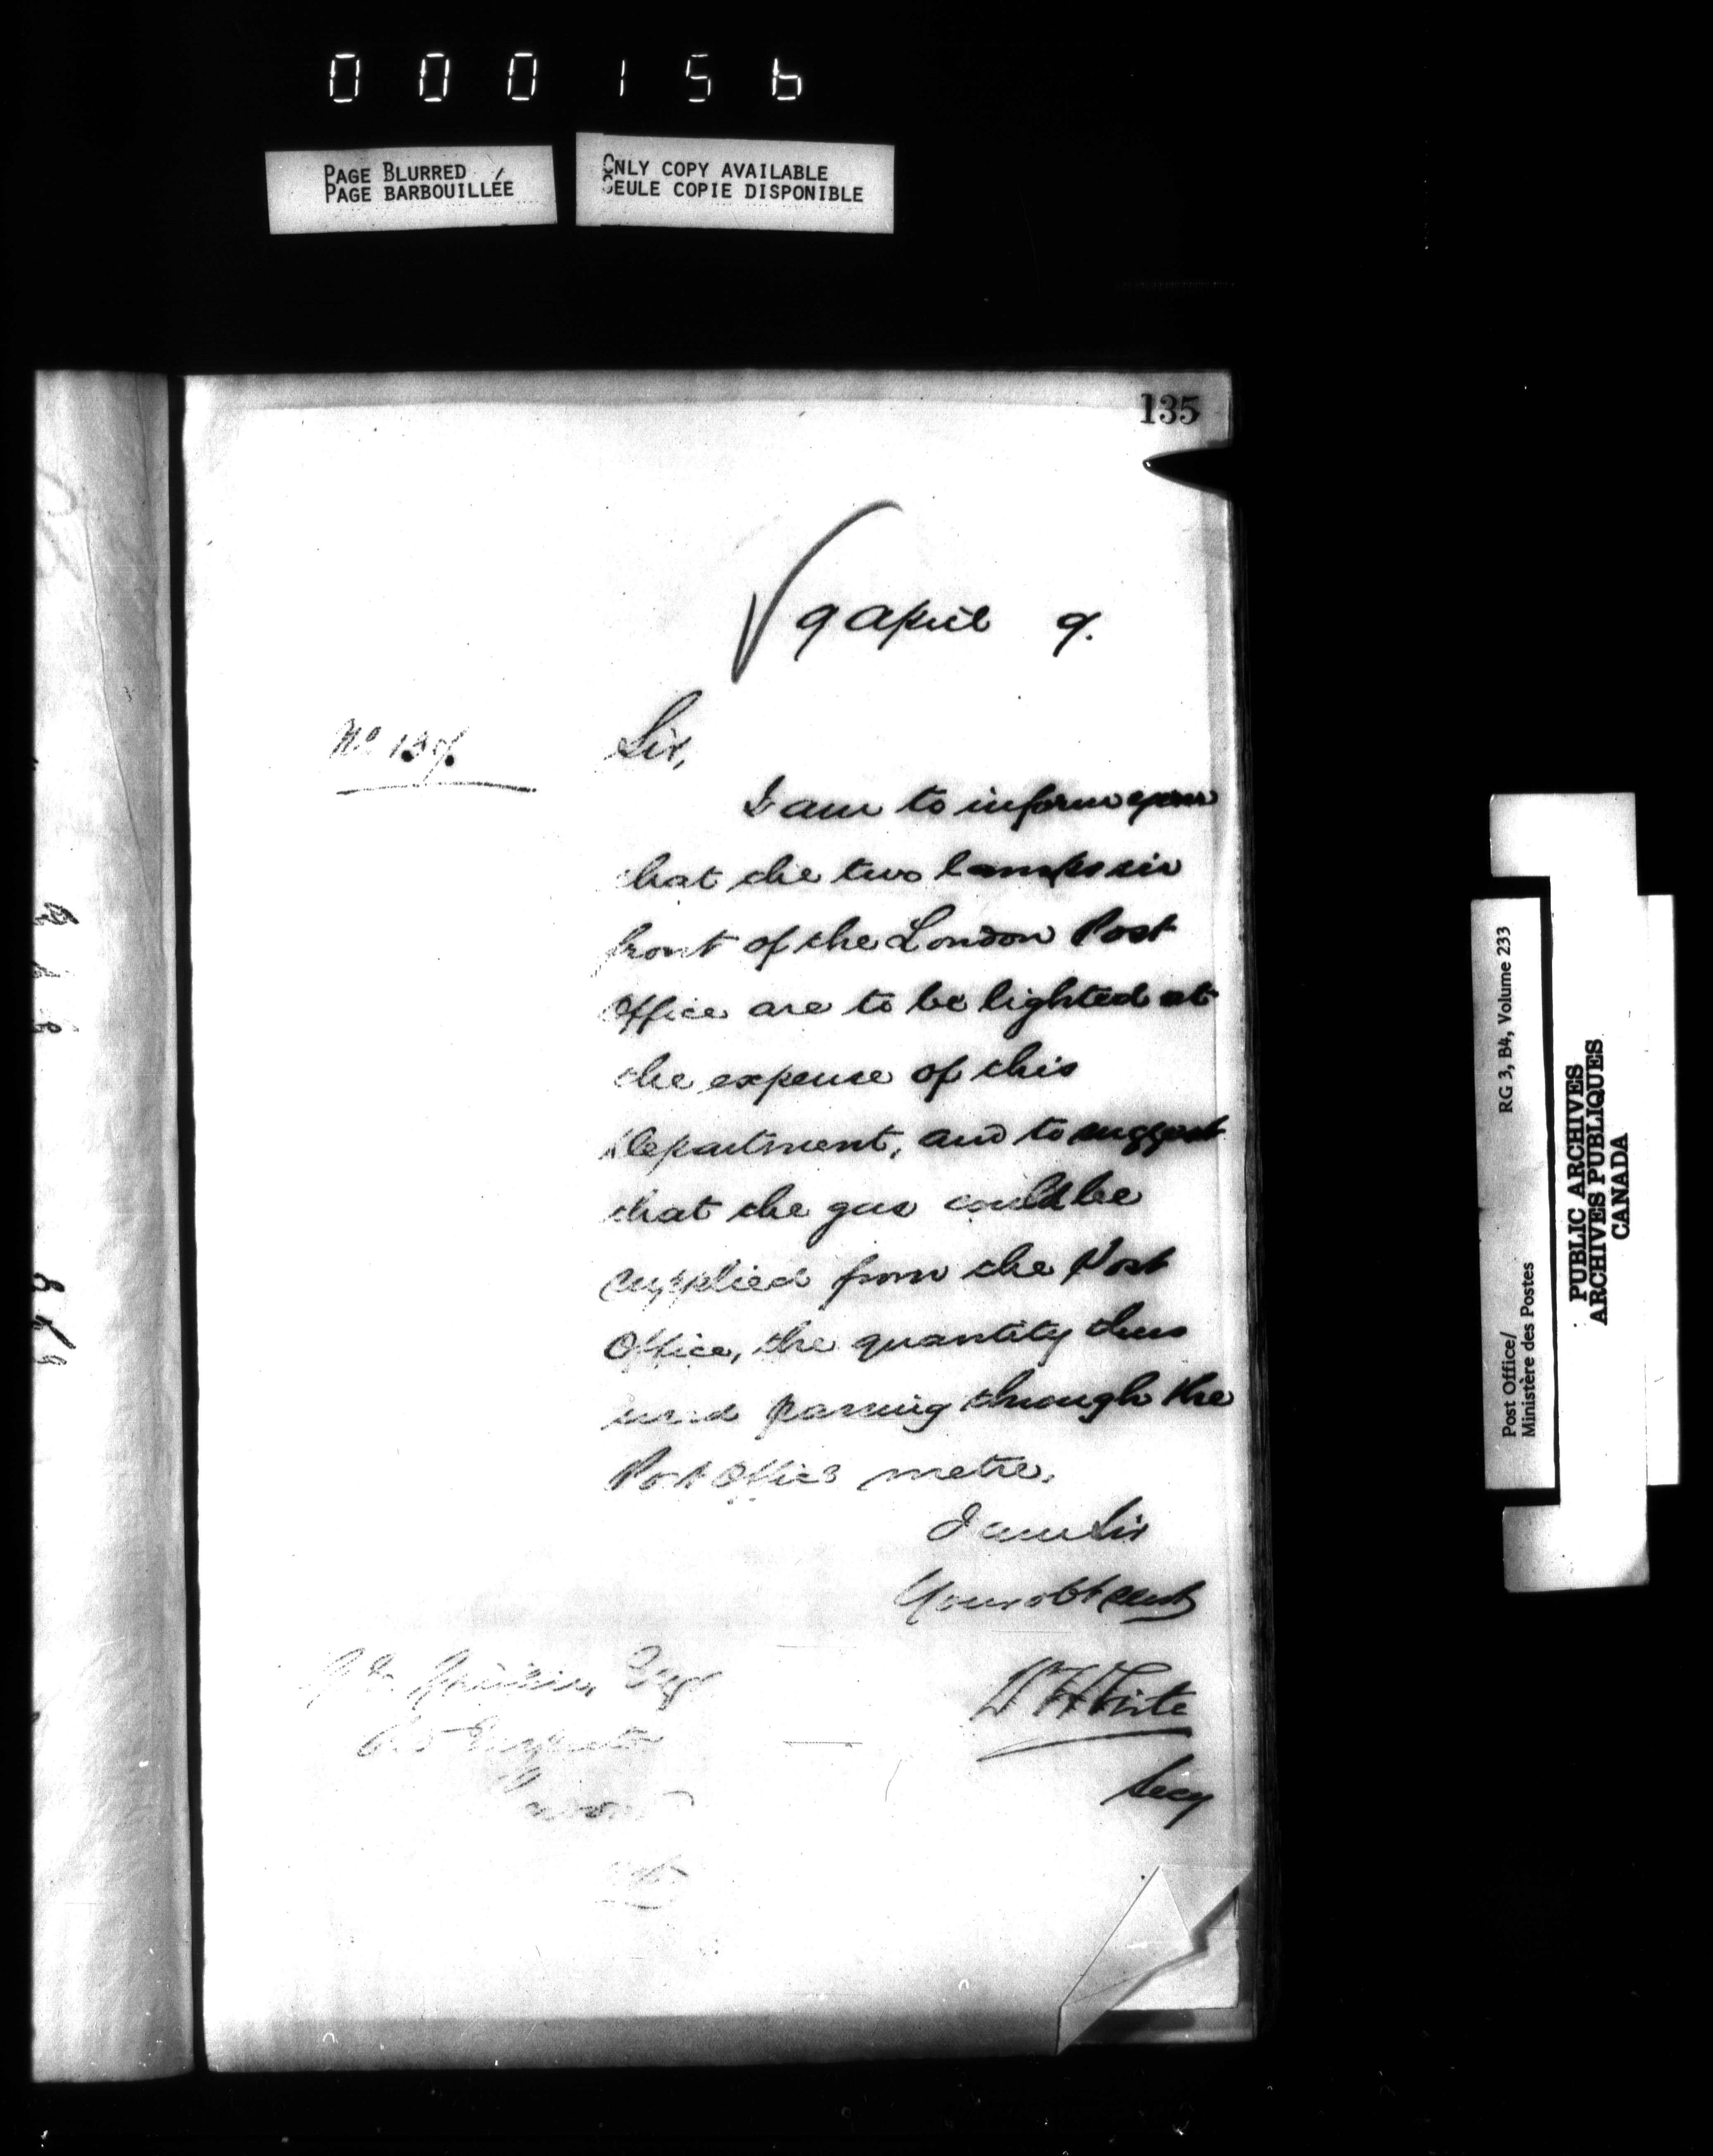 000156
PAGE BLURRED
PAGE BARBOUILLÉE
ONLY COPY AVAILABLE
SEULE COPIE DISPONIBLE
135
√ 9 April 9.
No 137.
Sir,
I am to inform you
that the two lamps in
front of the London Post
Office are to be lighted at
the expense of this
Department, and to suggest
that the gas could be
supplied from the Post
Office, the quantity thus
used passing through the
Post Office metre.
I am Sir
Your obt servt
W White
Secy
Esqr
P.O. Inspector
London
RG 3, B4, Volume 233
Post Office/
Ministère des Postes
PUBLIC ARCHIVES
ARCHIVES PUBLIQUES
CANADA